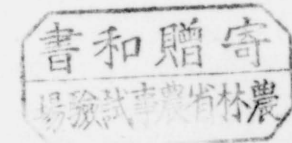 寄贈和書
農林省農事試驗場